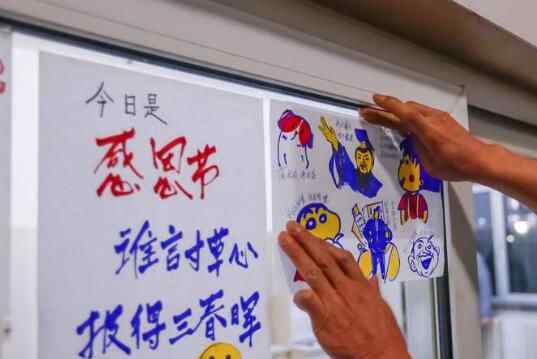 今日是
感恩节
谁討草心
报得三春晖